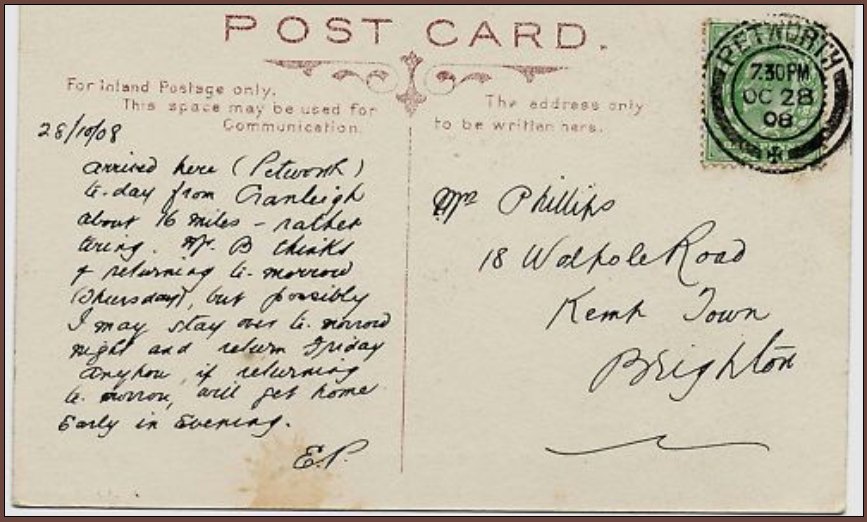 POST CARD.
For Inland Postage only.
This space may be used for
Communication.
The address only
to be written here.
PETWORTH
7.30PM
OC 28
08
28/10/08
arrived here (Petworth)
to-day from Cranleigh
about 16 miles – rather
tiring. Mr. B thinks
of returning to-morrow
(Thursday), but possibly
I may stay over to-morrow
night and return Friday
anyhow, if returning
to-morrow, will get home
Early in Evening.
E.P.
Mrs Phillips
18 Walpole Road
Kemp Town
Brighton